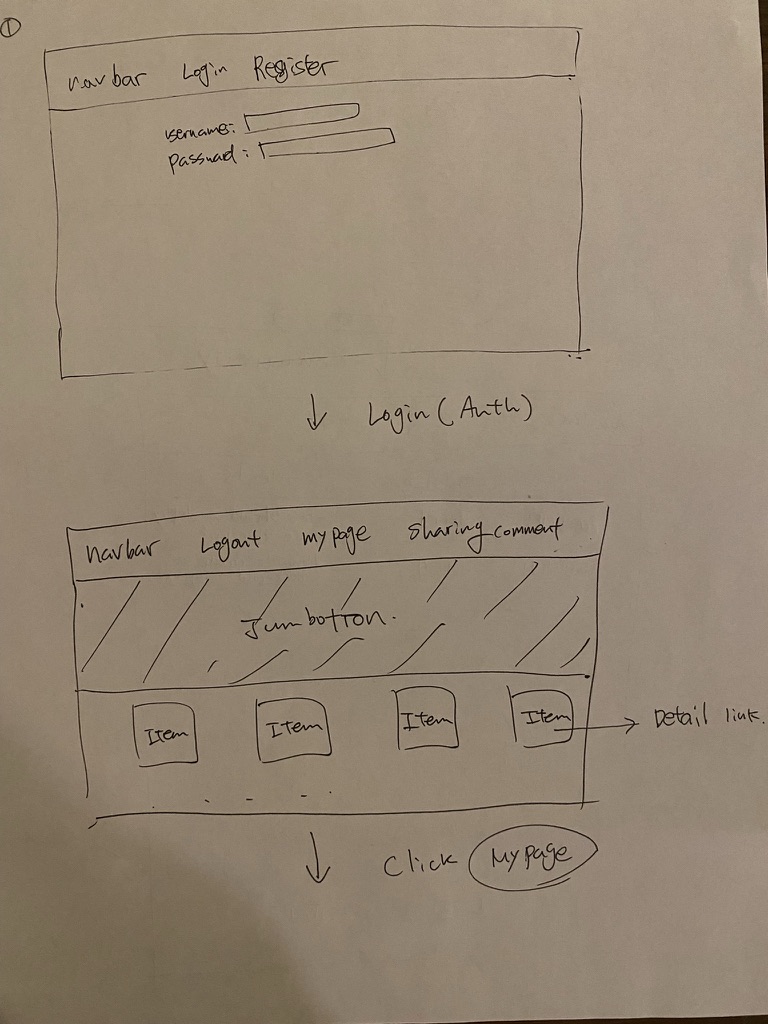 ①
navbar Login Register
username:
Password:
↓ Login (Auth)
navbar Logout mypage sharing comment
Jumbotron.
Item Item Item Item → Detail link.
↓ Click Mypage